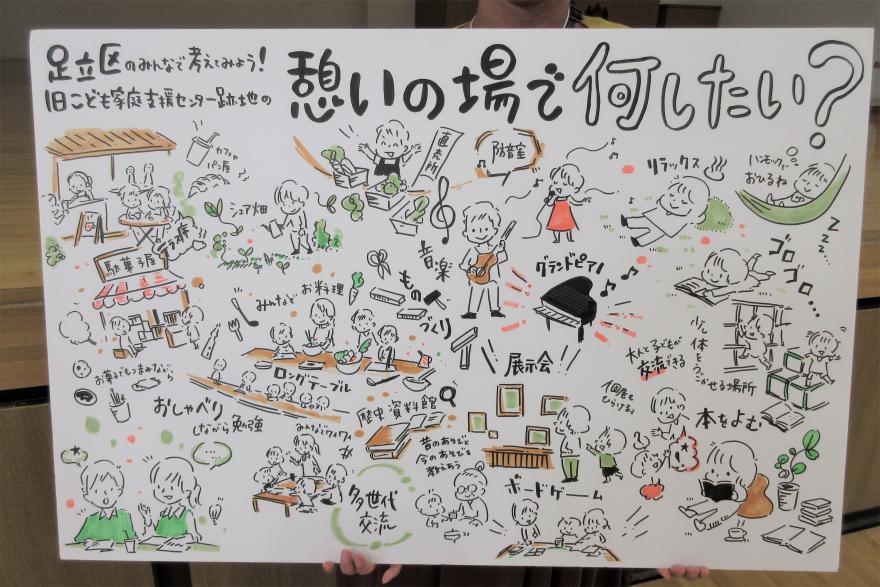 足立区のみんなで考えてみよう!
旧こども家庭支援センター跡地の
憩いの場で何したい?
カフェ
パン屋
直売所
防音室
リラックス
ハンモックで
おひるね
シェア畑
テラス席
駄菓子屋
音楽
グランドピアノ
ゴロゴロ
zzz
みんなで
お料理
もの
づくり
ロングテーブル
展示会
大人と子どもが
交流できる
少し体を
うごかせる場所
お菓子でもつまみながら
おしゃべり
しながら勉強
みんなでワイワイ
歴史資料館
昔のあそびも
今のあそびも
教えあう
本をよむ
多世代
交流
ボードゲーム